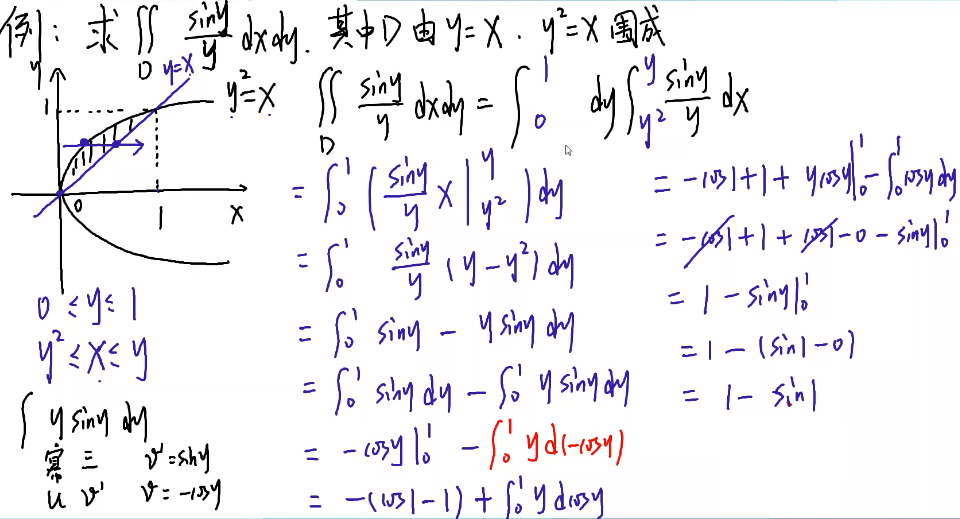 例: 求 ∬_D siny/y dxdy. 其中D由 y=x, y²=x 围成
y
y=x
y²=x
1
0
1
x
0 ≤ y ≤ 1
y² ≤ x ≤ y
∫ y siny dy
幂 三 v'=siny
u v' v=-cosy
∬_D siny/y dxdy = ∫_0^1 dy ∫_{y²}^{y} siny/y dx
= ∫_0^1 ( siny/y x |_{y²}^{y} ) dy
= ∫_0^1 siny/y (y-y²) dy
= ∫_0^1 siny - y siny dy
= ∫_0^1 siny dy - ∫_0^1 y siny dy
= -cosy|_0^1 - ∫_0^1 y d(-cosy)
= -(cos1-1) + ∫_0^1 y dcosy
= -cos1+1+ ycosy|_0^1 - ∫_0^1 cosy dy
= -cos1+1+cos1-0-siny|_0^1
= 1 - siny|_0^1
= 1 - (sin1-0)
= 1 - sin1